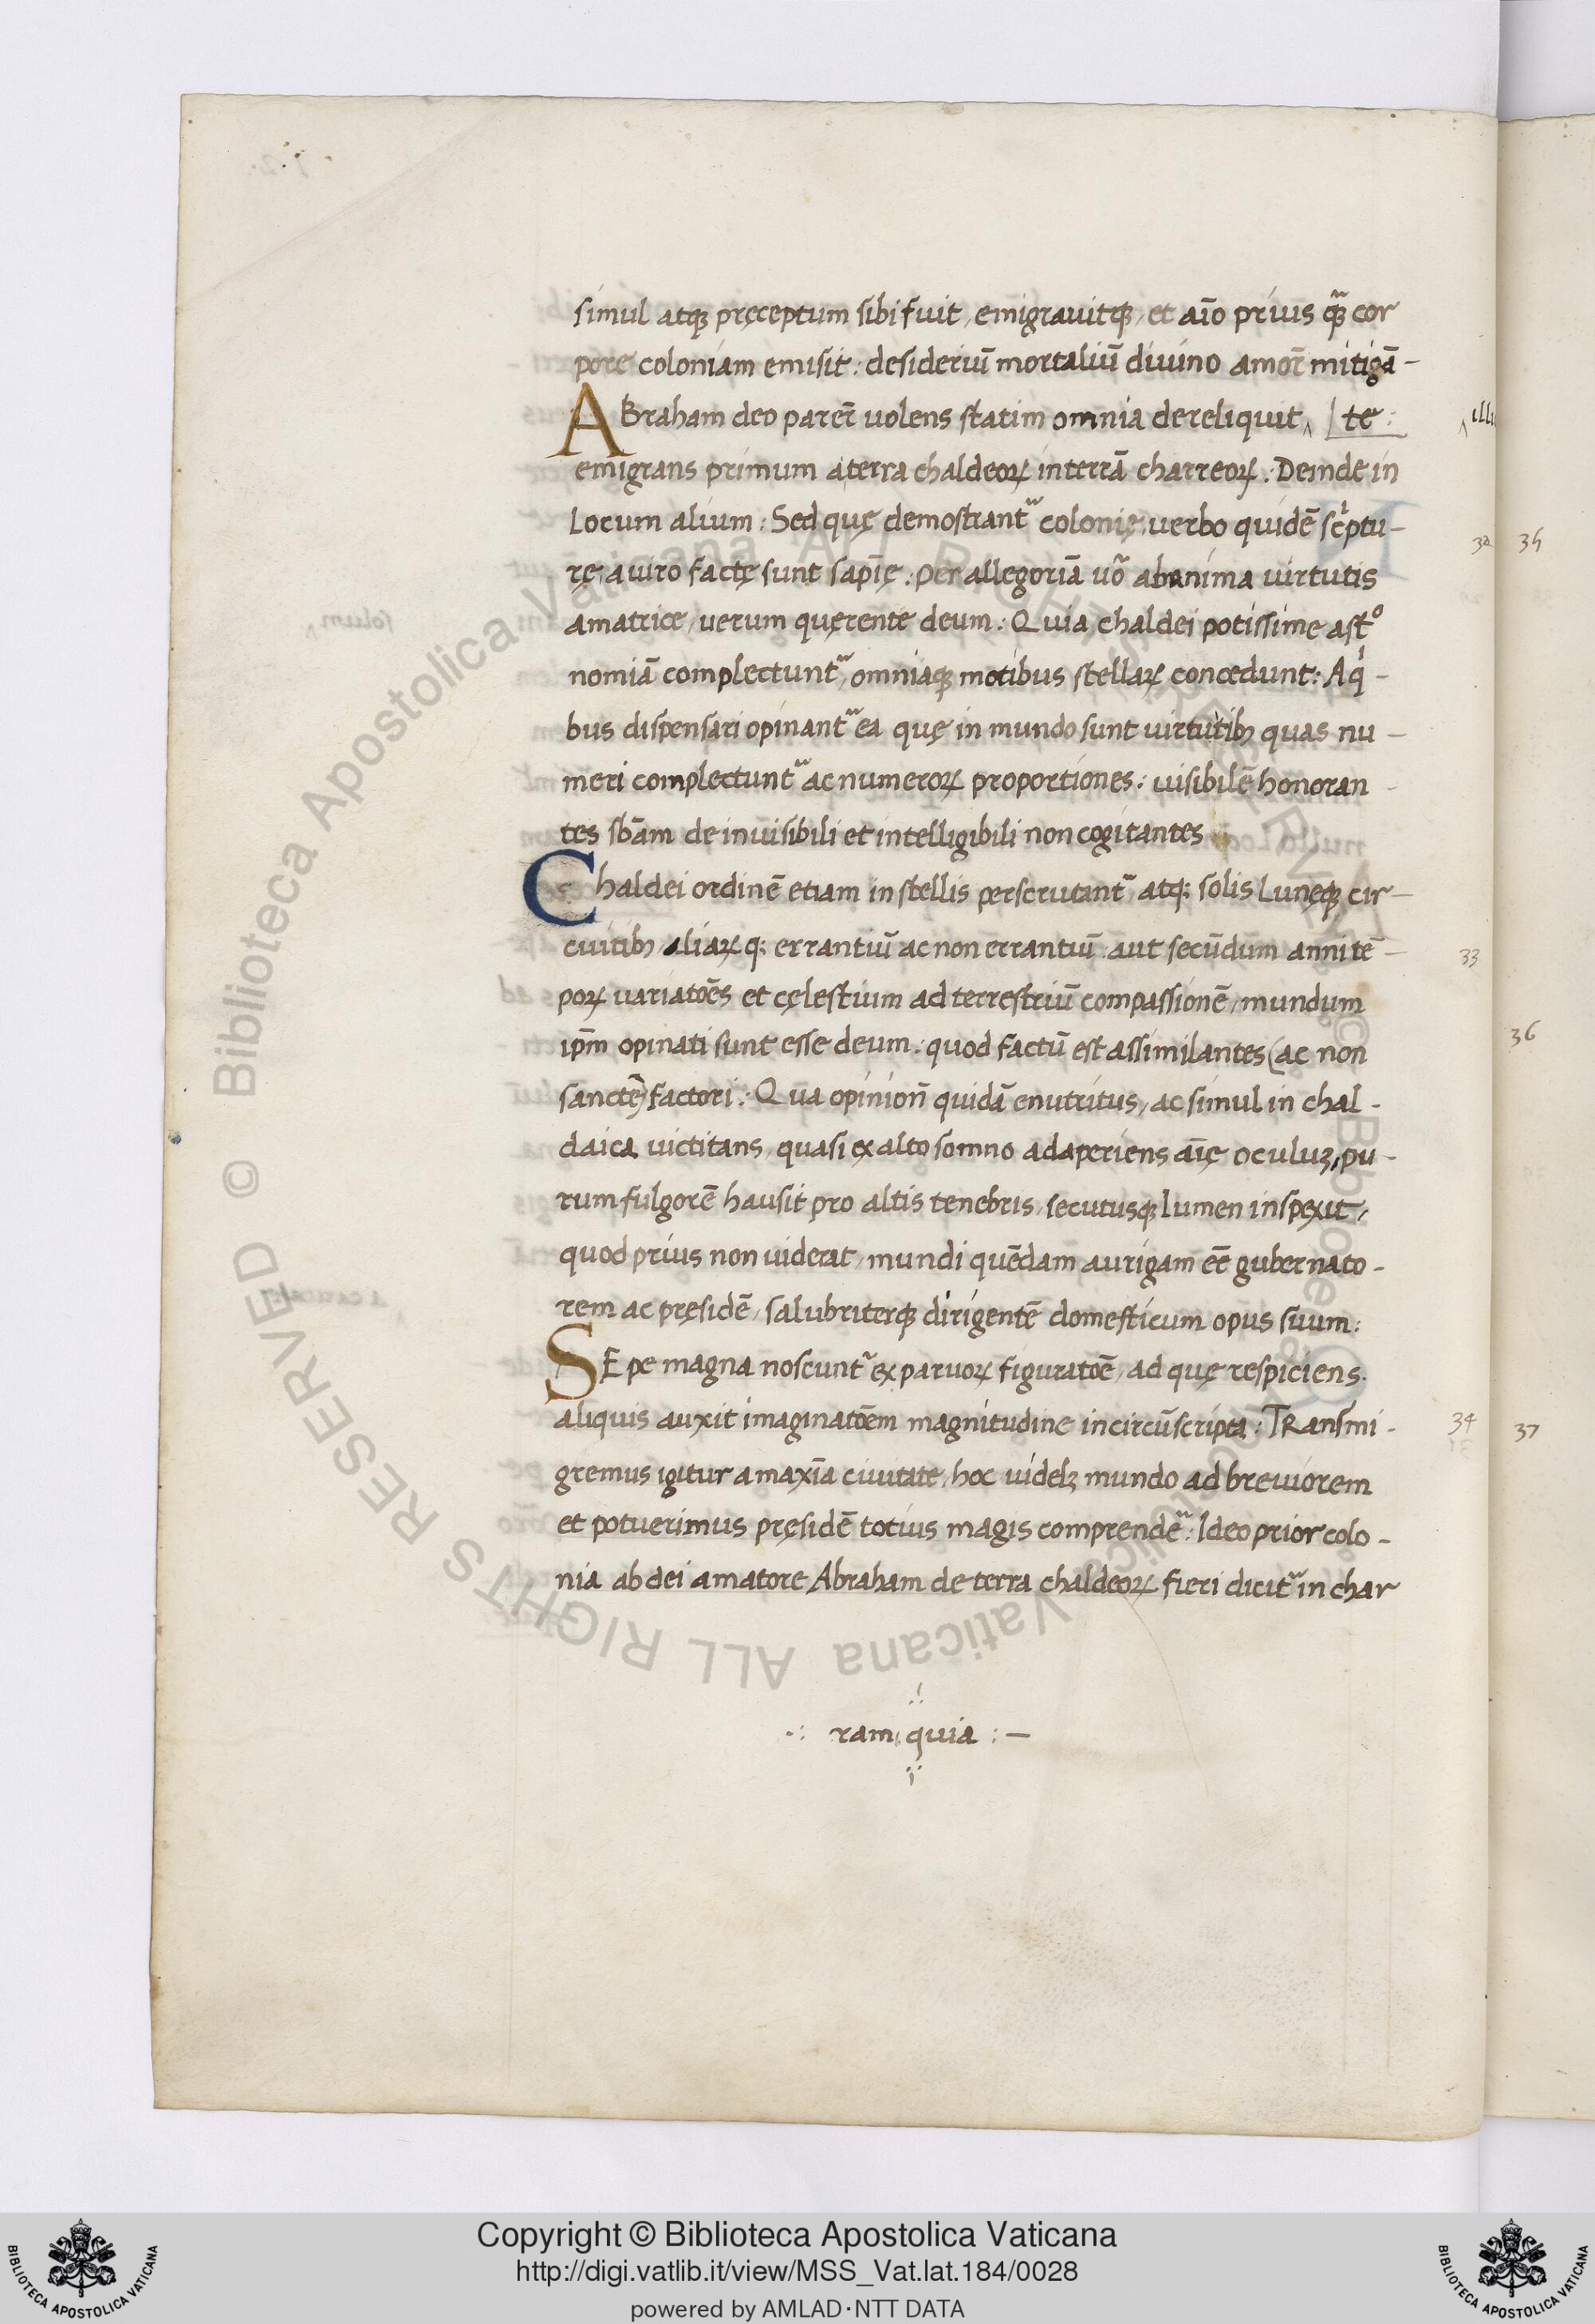 simul atqꝫ pręceptum sibi fuit, emigrauitqꝫ, et aīo prius qꝫ̄ cor
pore coloniam emisit: desideriū mortaliū diuino amor̄ mitigā-
ABraham deo parer̄ uolens statim omnia dereliquit ^ | te:
^ illi
emigrans primum a terra chaldeoꝝ in terrā charreoꝝ: Deinde in
Locum alium: Sed quę demostrant᷑ colonię, uerbo quidē sc̄ptu-
32 35
rę, a uiro factę sunt sapīę: per allegoriā uo᷑ ab anima uirtutis
amatrice, uerum quęrente deum: Quia chaldei potissime astº
nomiā complectunt᷑, omniaqꝫ motibus stellaꝝ concedunt: A q̇-
bus dispensari opinant᷑ ea quę in mundo sunt uirtutibꝫ quas nu-
meri complectunt᷑ ac numeroꝝ proportiones: uisibilē honoran
tes sb̄am de inuisibili et intelligibili non cogitantes
Chaldei ordinē etiam in stellis perscrutant᷑ atq; solis Lunęqꝫ cir-
cuitibꝫ aliaꝝ q; errantiū ac non errantiū aut secūdum anni tē-
33
poꝝ uariatōes et cęlestium ad terrestriū compassionē, mundum
ip̄m opinati sunt esse deum: quod factū est assimilantes (ac non
36
sanctē) factori: Qua opinion̄ quidā enutritus, ac simul in chal-
daica uictitans, quasi ex alto somno adaperiens aīę oculuꝫ, pu-
rum fulgorē hausit pro altis tenebris, secutusqꝫ lumen inspexit,
quod prius non uiderat, mundi quēdam aurigam eē gubernato-
rem ac pręsidē, salubriterqꝫ dirigentē domesticum opus suum:
SEpe magna noscunt᷑ ex paruoꝝ figuratōe, ad quę respiciens.
aliquis auxit imaginatōem magnitudine incircūscripta: TRansmi-
34 37
gremus igitur a maxīa ciuitate, hoc uidelꝫ mundo ad breuiorem
et potuerimus pręsidē totius magis comprendē᷑: Ideo prior colo-
nia ab dei amatore Abraham de terra chaldeoꝝ fieri dicit᷑ in char
ram, quia :—
Copyright © Biblioteca Apostolica Vaticana
http://digi.vatlib.it/view/MSS_Vat.lat.184/0028
powered by AMLAD·NTT DATA
BIBLIOTECA APOSTOLICA VATICANA
BIBLIOTECA APOSTOLICA VATICANA